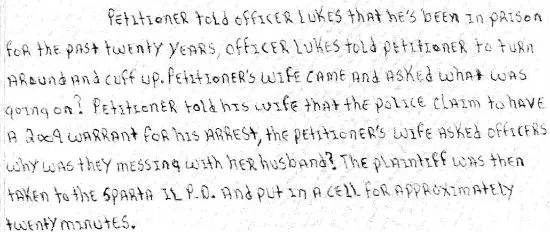 Petitioner told officer Lukes that he's been in prison
for the past twenty years, officer Lukes told petitioner to turn
around and cuff up. Petitioner's wife came and asked what was
going on? Petitioner told his wife that the police claim to have
a 2009 warrant for his arrest, the petitioner's wife asked officers
why was they messing with her husband? The plaintiff was then
taken to the Sparta IL P.D. and put in a cell for approximately
twenty minutes.